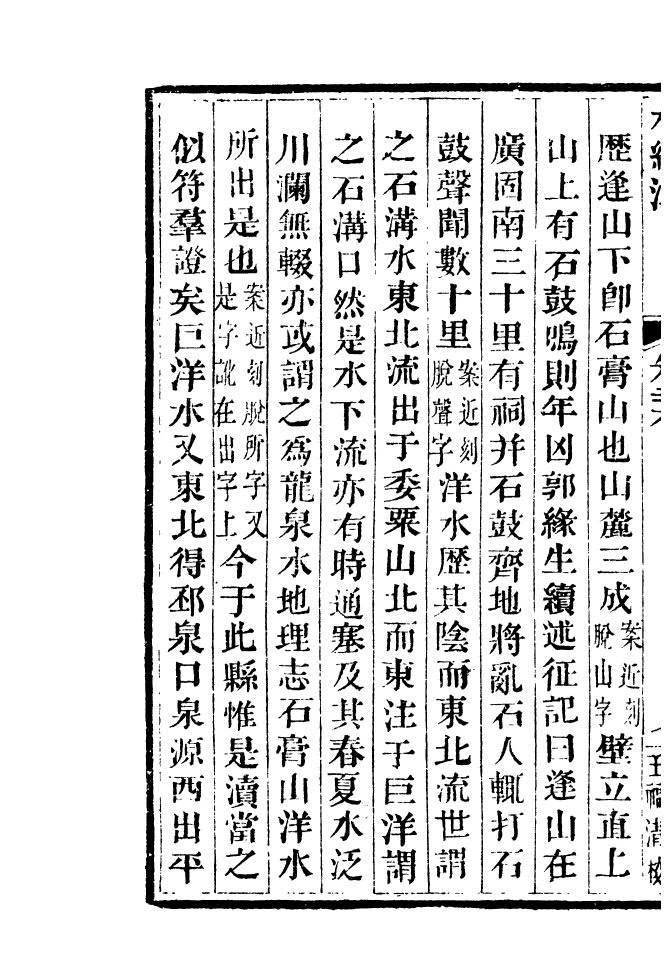 歷逢山下卽石膏山也山麓三成案近刻脫山字壁立直上
山上有石鼓鳴則年凶郭緣生續述征記曰逢山在
廣固南三十里有祠并石鼓齊地將亂石人輒打石
鼓聲聞數十里案近刻脫聲字洋水歷其陰而東北流世謂
之石溝水東北流出于委粟山北而東注于巨洋謂
之石溝口然是水下流亦有時通塞及其春夏水泛
川瀾無輟亦或謂之爲龍泉水地理志石膏山洋水
所出是也案近刻脫所字又是字訛在出字上今于此縣惟是瀆當之
似符羣證矣巨洋水又東北得邳泉口泉源西出平